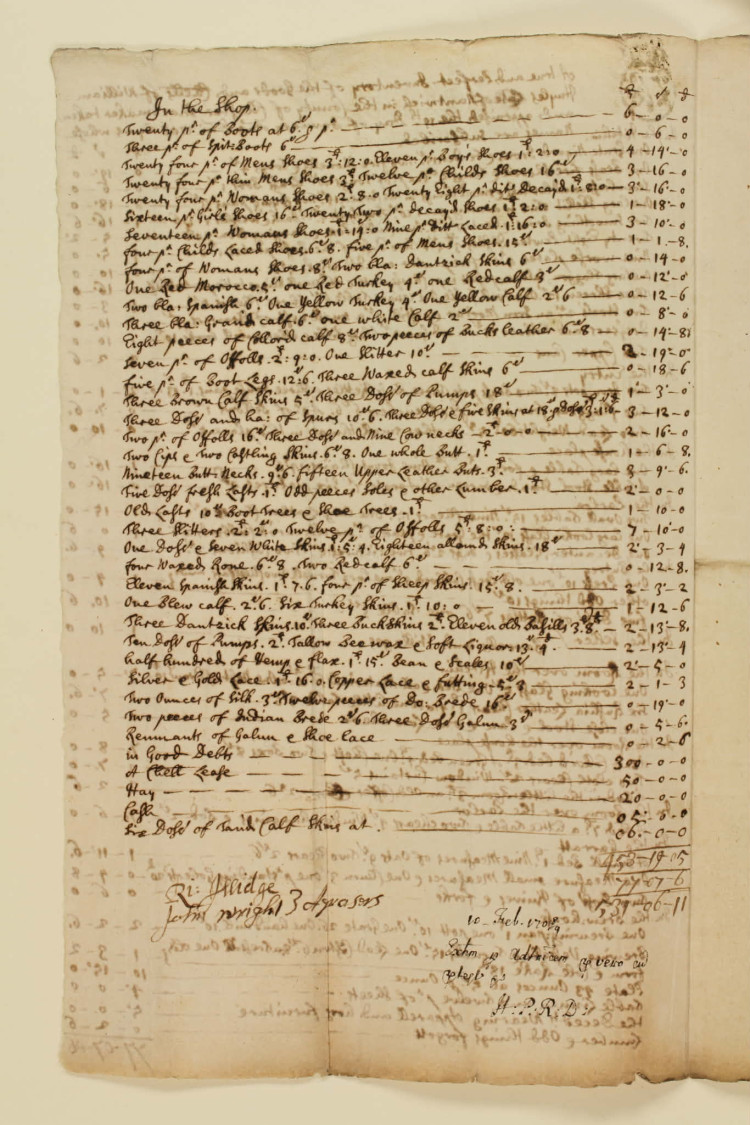 In the Shop. £ s d
Twenty p.r of Boots at 6.s p p.r 6 - 0 - 0
Three p.r of Spit: Boots 6s 0 - 6 - 0
Twenty four p.r of Mens Shoes 3:12:0. Eleven p.r Boy's Shoes 1:2:0 4 - 14 - 0
Twenty four p.r thin Mens Shoes 3£ Twelve p.r Childs Shoes 16s 3 - 16 - 0
Twenty four p.r Womans Shoes 2:8:0 Twenty Eight p.r ditt decay'd 1:8:0 3 - 16 - 0
Sixteen p.r Girls Shoes 16s Twenty Two p.r decay'd Shoes 1:2:0 1 - 18 - 0
Seventeen p.r Womans Shoes. 1:14:0 Nine p.r Ditt Laced. 1:16:0 3 - 10 - 0
four p.r Childs Laced Shoes. 6s 8. five p.r of Mens Shoes. 15s 1 - 1 - 8.
four p.r of Womans Shoes. 8s Two bla: Dantzick Skins 6s 0 - 14 - 0
One Red Morocco. 5s one Red Turkey 4s one Redcalf 3s 0 - 12 - 0
Two bla: Spanish 6s One Yellow Turkey 4s One Yellow Calf 2s 6 0 - 12 - 6
Three bla: Graind calf. 6s one white Calf 2s 0 - 8 - 0
Eight peeces of Collor'd calf 8s Two peeces of Bucks leather 6s 8 0 - 14 - 8
Seven p.r of Offolls. 2:9:0. One Slitter 10s 2 - 19 - 0
five p.r of Boot Legs. 12:6. Three Waxed calf Skins 6s 0 - 18 - 6
Three brown Calf Skins 5s Three Doz of Pumps 18s 1 - 3 - 0
Three Doz and ha: of Spurs 10s 6. Three Doz & five Skins at 18s p doz 3:1:6 3 - 12 - 0
Two p.r of Offolls 16s Three Doz and Nine Cow necks 2 - 0 - 0 2 - 16 - 0
Two Cips & Two Castling Skins. 6s 8. One whole Butt. 1£ 1 - 6 - 8.
Nineteen Butt Necks. 9s 6. fifteen Upper Leather Buts. 3£ 3 - 9 - 6.
Five Doz fresh Lasts. 1£ Odd peeces Soles & other Lumber. 1£ 2 - 0 - 0
Old Lasts 10s Boot Trees & Shoe Trees. 1£ 1 - 10 - 0
Three Slitters. 2:2:0. Twelve p.r of Offolls 5:8:0: 7 - 10 - 0
One Doz & Seven White Skins. 1:5:4. Eighteen allamd Skins. 18s 2 - 3 - 4
four Waxed Rone. 6s 8. Two Redcalf 6s 0 - 12 - 8.
Eleven Spanish Skins. 1:7:6. four p.r of Sheep Skins. 15s 8. 2 - 3 - 2
One Blew calf. 2s 6. Six Turkey Skins. 1:10:0 1 - 12 - 6
Three Dantzick Skins. 10s Three Buckskins 2£. Eleven old Basills 3s 8 2 - 13 - 8.
Ten Doz of Pumps. 2£. Tallow Beeswax & Soft Liquor. 13s 4 2 - 13 - 4
half hundred of Hemp & flax. 1£ 15s Bean & Scales 10s 2 - 5 - 0
Silver & Gold Lace. 1£ 16:0. Copper Lace & futting. 5s 3 2 - 1 - 3
Two Ounces of Silk. 3s Twelve peeces of Do: Brede 16s 0 - 19 - 0
Two peeces of Indian Brede 2s 6. Three Doz Galun 3s 0 - 5 - 6.
Remnants of Galun & Shoe lace 0 - 2 - 6
in Good Debts 300 - 0 - 0
A Lease 50 - 0 - 0
Hay 20 - 0 - 0
Cash 05 - 6 - 0
Six Doz of Tan'd Calf Skins at 06 - 0 - 0
453 - 19 - 05
77 - 07 - 6
539 - 06 - 11
Ri: Illidge
John Wright } Aprasers
10 Feb. 1708/9
H: P: R: D: